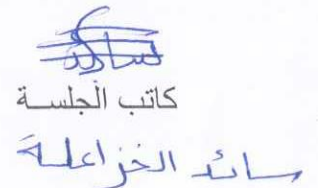 كاتب الجلسة
سائد الخزاعلة